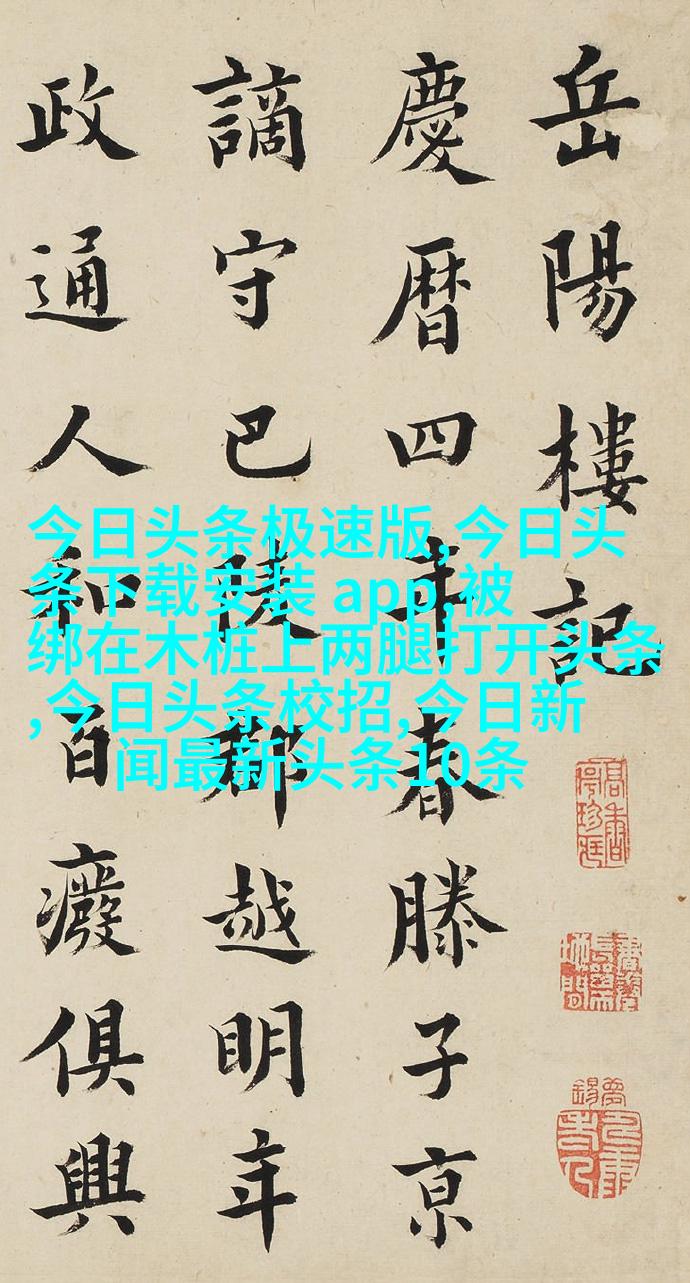 岳陽樓記
慶曆四年春滕子京
謫守巴陵郡越明年
政通人和百癈俱興
今日头条极速版,今日头
条下载安装 app,被
绑在木桩上两腿打开头条
,今日头条校招,今日新
闻最新头条10条